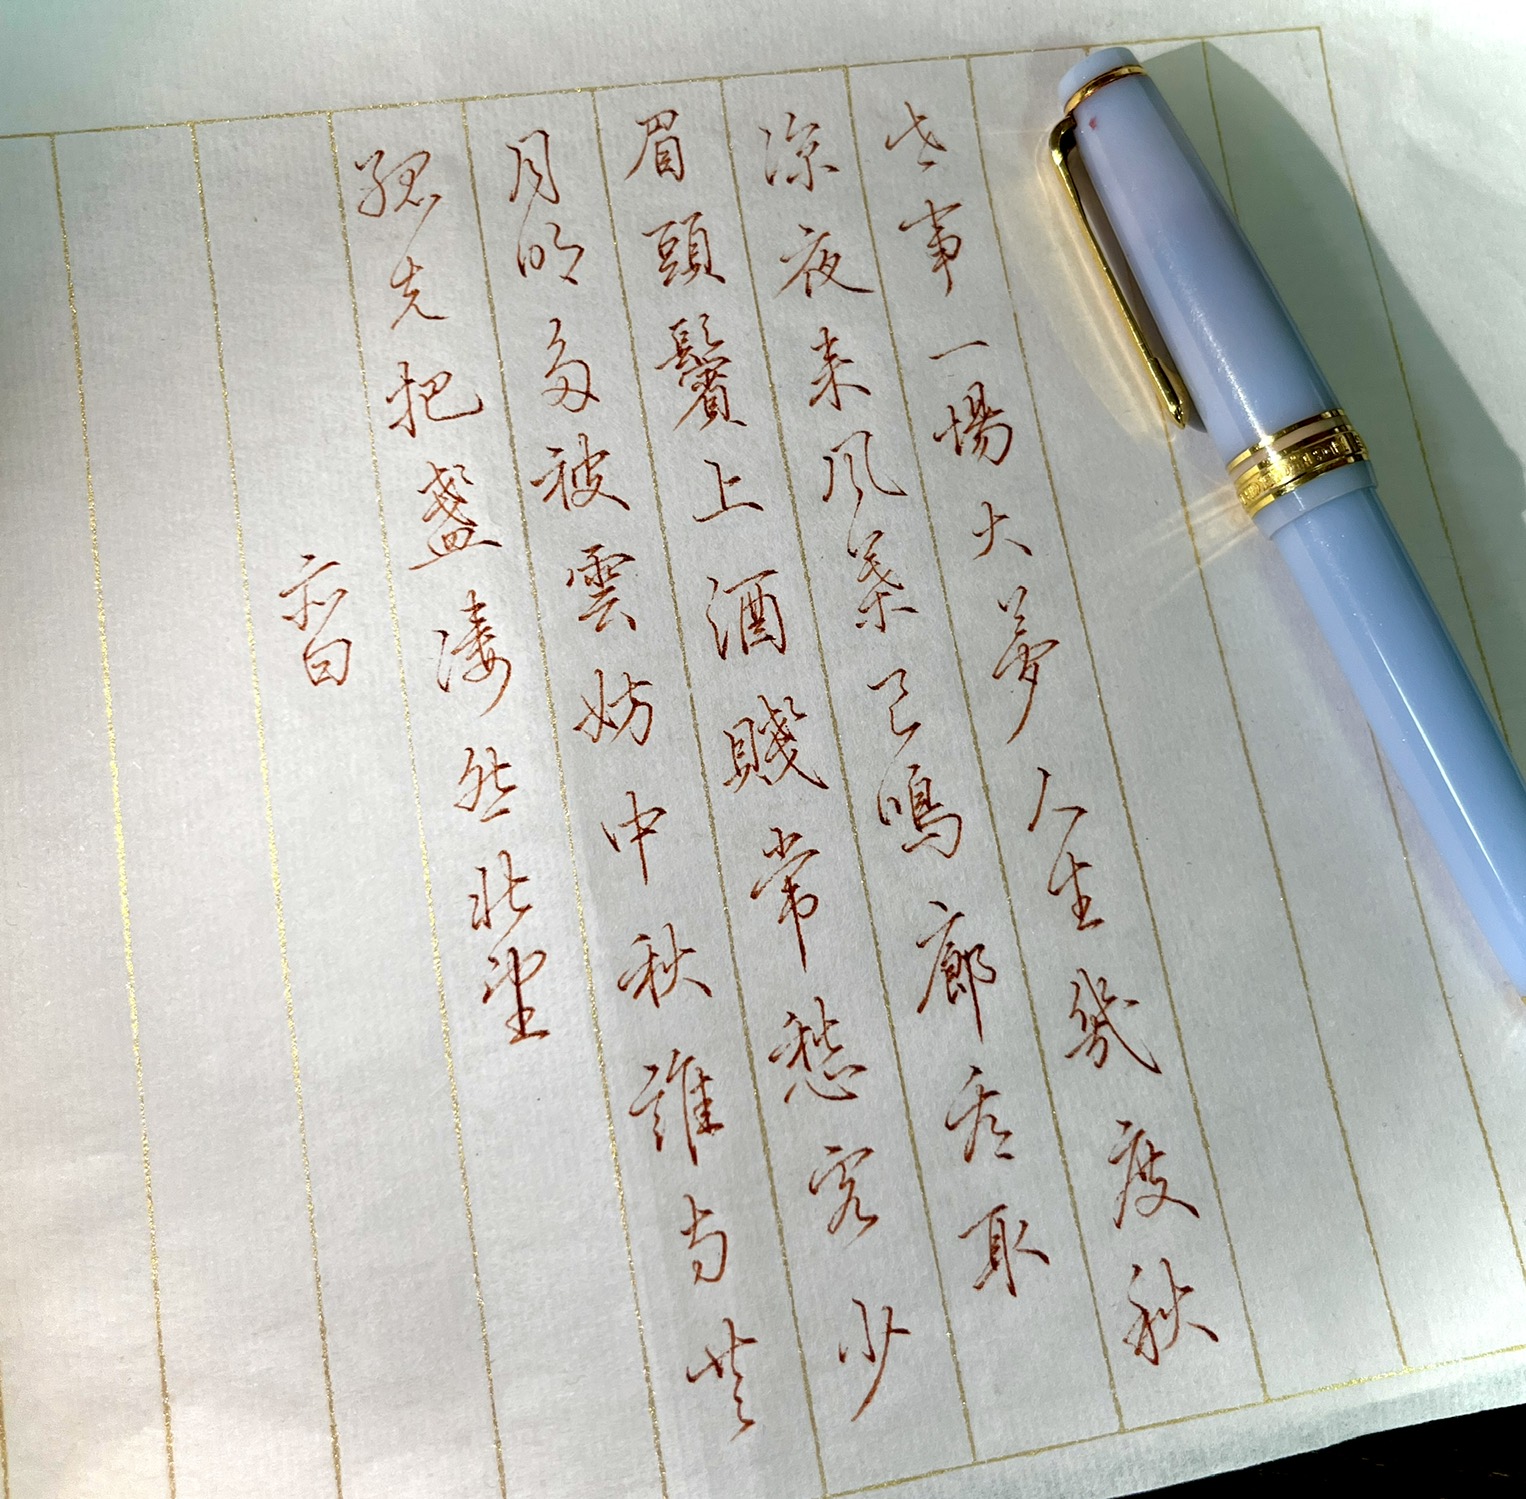 世事一場大夢人生幾度秋
涼夜来風葉已鳴廊看取
眉頭鬢上酒賤常愁客少
月明多被雲妨中秋誰与共
孤光把盞淒然北望